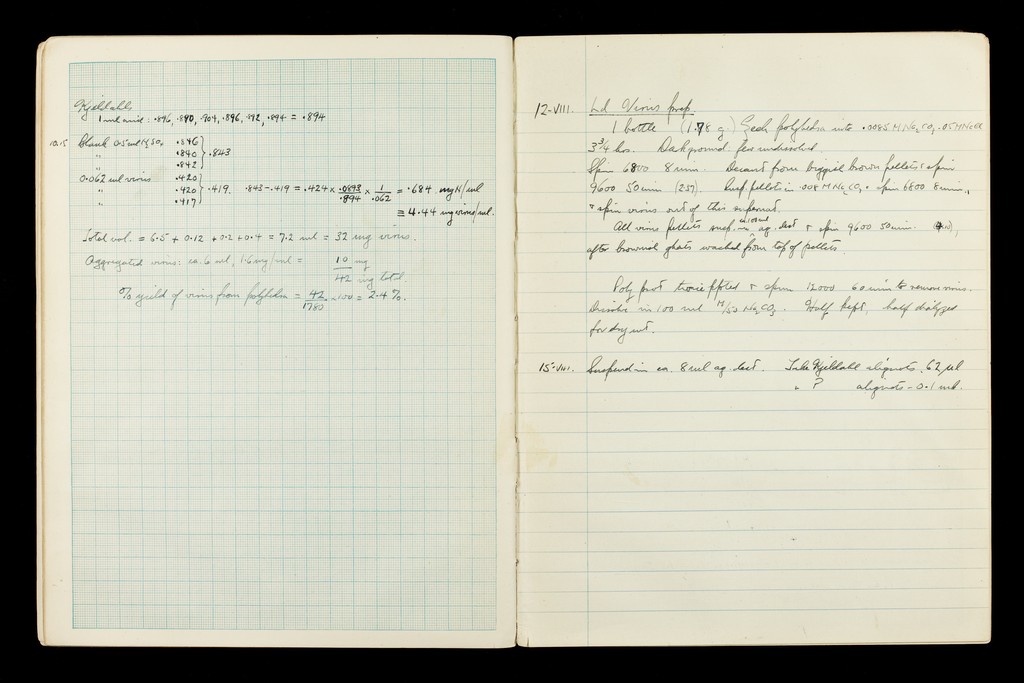 Kjeldahls
1 ml acid: .896, .890, .904, .896, .892, .894 = .894
10.15 Blank 0.5 ml H2SO4 .846
" .840 } .843
" .842
0.062 ml virus .420
" .420 } .419. .843 - .419 = .424 × .0893/.894 × 1/.062 = .684 mg N/ml
" .417
≡ 4.44 mg virus/ml.
Total vol. = 6.5 + 0.12 + 0.2 + 0.4 = 7.2 ml = 32 mg virus.
Aggregated virus: ca. 6 ml, 1.6 mg/ml = 10 mg
42 mg total.
% yield of virus from polyhedra = 42/1780 × 100 = 2.4 %.
12-VIII. Ld Virus prep.
1 bottle (1.78 g.) Gech polyhedra into .0085 M Na2CO3 .05 M NaCl
3 3/4 hrs. Background few undissolved.
Spin 6800 8 min. Decant from biggish brown pellets & spin
9600 50 min (237). Susp. pellets in .008 M Na2CO3 & spin 6800 8 min.,
& spin virus out of this supernat.
All virus pellets susp. in ca 10 ml ag. dest & spin 9600 50 min
after brownish ghosts washed from top of pellets.
Poly prot twice ppted & spun 12000 60 min to remove virus.
Dissolve in 100 ml M/50 Na2CO3. Half kept, half dialyzed
for dry wt.
15-VIII. Suspend in ca. 8 ml aq. dest. Take Kjeldahl aliquots .62 µl
" ? aliquots - 0.1 ml.